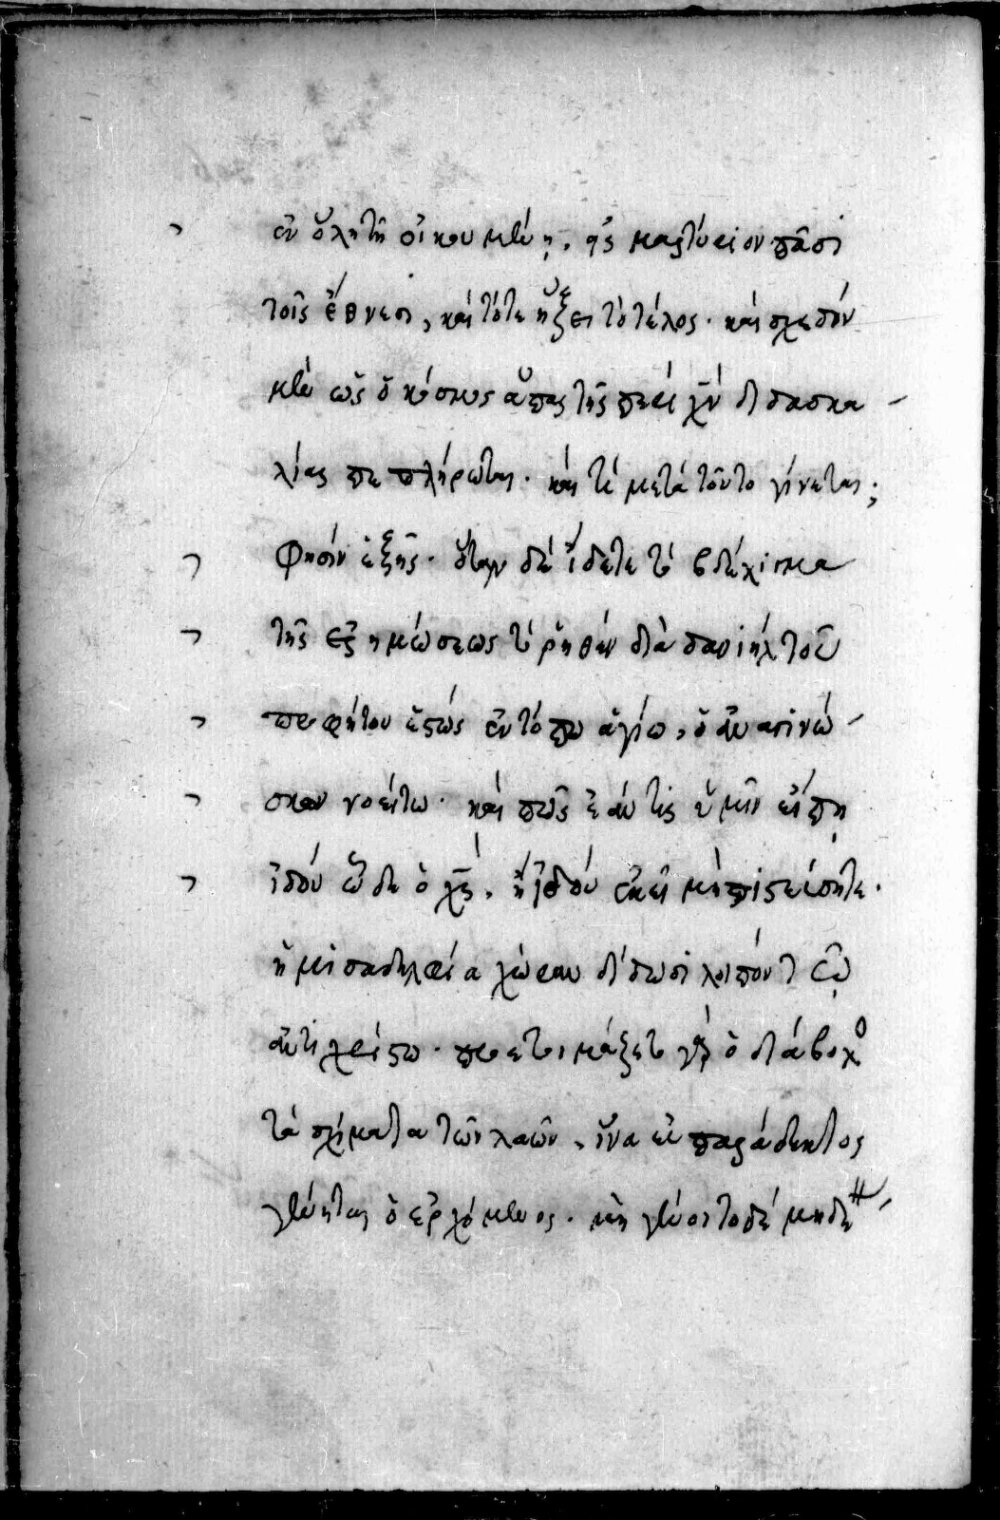 ἐν ὅλῃ τῇ οἰκουμένῃ, εἰς μαρτύριον πᾶσι
τοῖς ἔθνεσι, καὶ τότε ἥξει τὸ τέλος. καὶ σχεδὸν
μὲν ὡς ὁ κόσμος ἅπας τῆς περὶ χῦ διδασκα –
λίας πεπλήρωται. καὶ τί μετὰ τοῦτο γίνεται;
Φησὶν ἑξῆς. ὅταν δὲ ἴδετε τὸ βδέλυγμα
τῆς ἐρημώσεως τὸ ῥηθὲν διὰ δανιὴλ τοῦ
προφήτου ἑστὼς ἐν τόπῳ ἁγίῳ, ὁ ἀναγινώ –
σκων νοείτω. καὶ πῶς ἐάν τις ὑμῖν εἴπῃ
ἰδοὺ ὧδε ὁ χς, ἢ ἰδοὺ ἐκεῖ μὴ πιστεύσητε.
ἡ μισαδελφία χώραν δίδωσι λοιπὸν τῷ
ἀντιχρίστῳ. προετοιμάζει γὰρ ὁ διάβολο
τὰ σχίσματα τῶν λαῶν, ἵνα εὐπαράδεκτος
γένηται ὁ ἐρχόμενος. μὴ γένοιτο δὲ μηδὲ